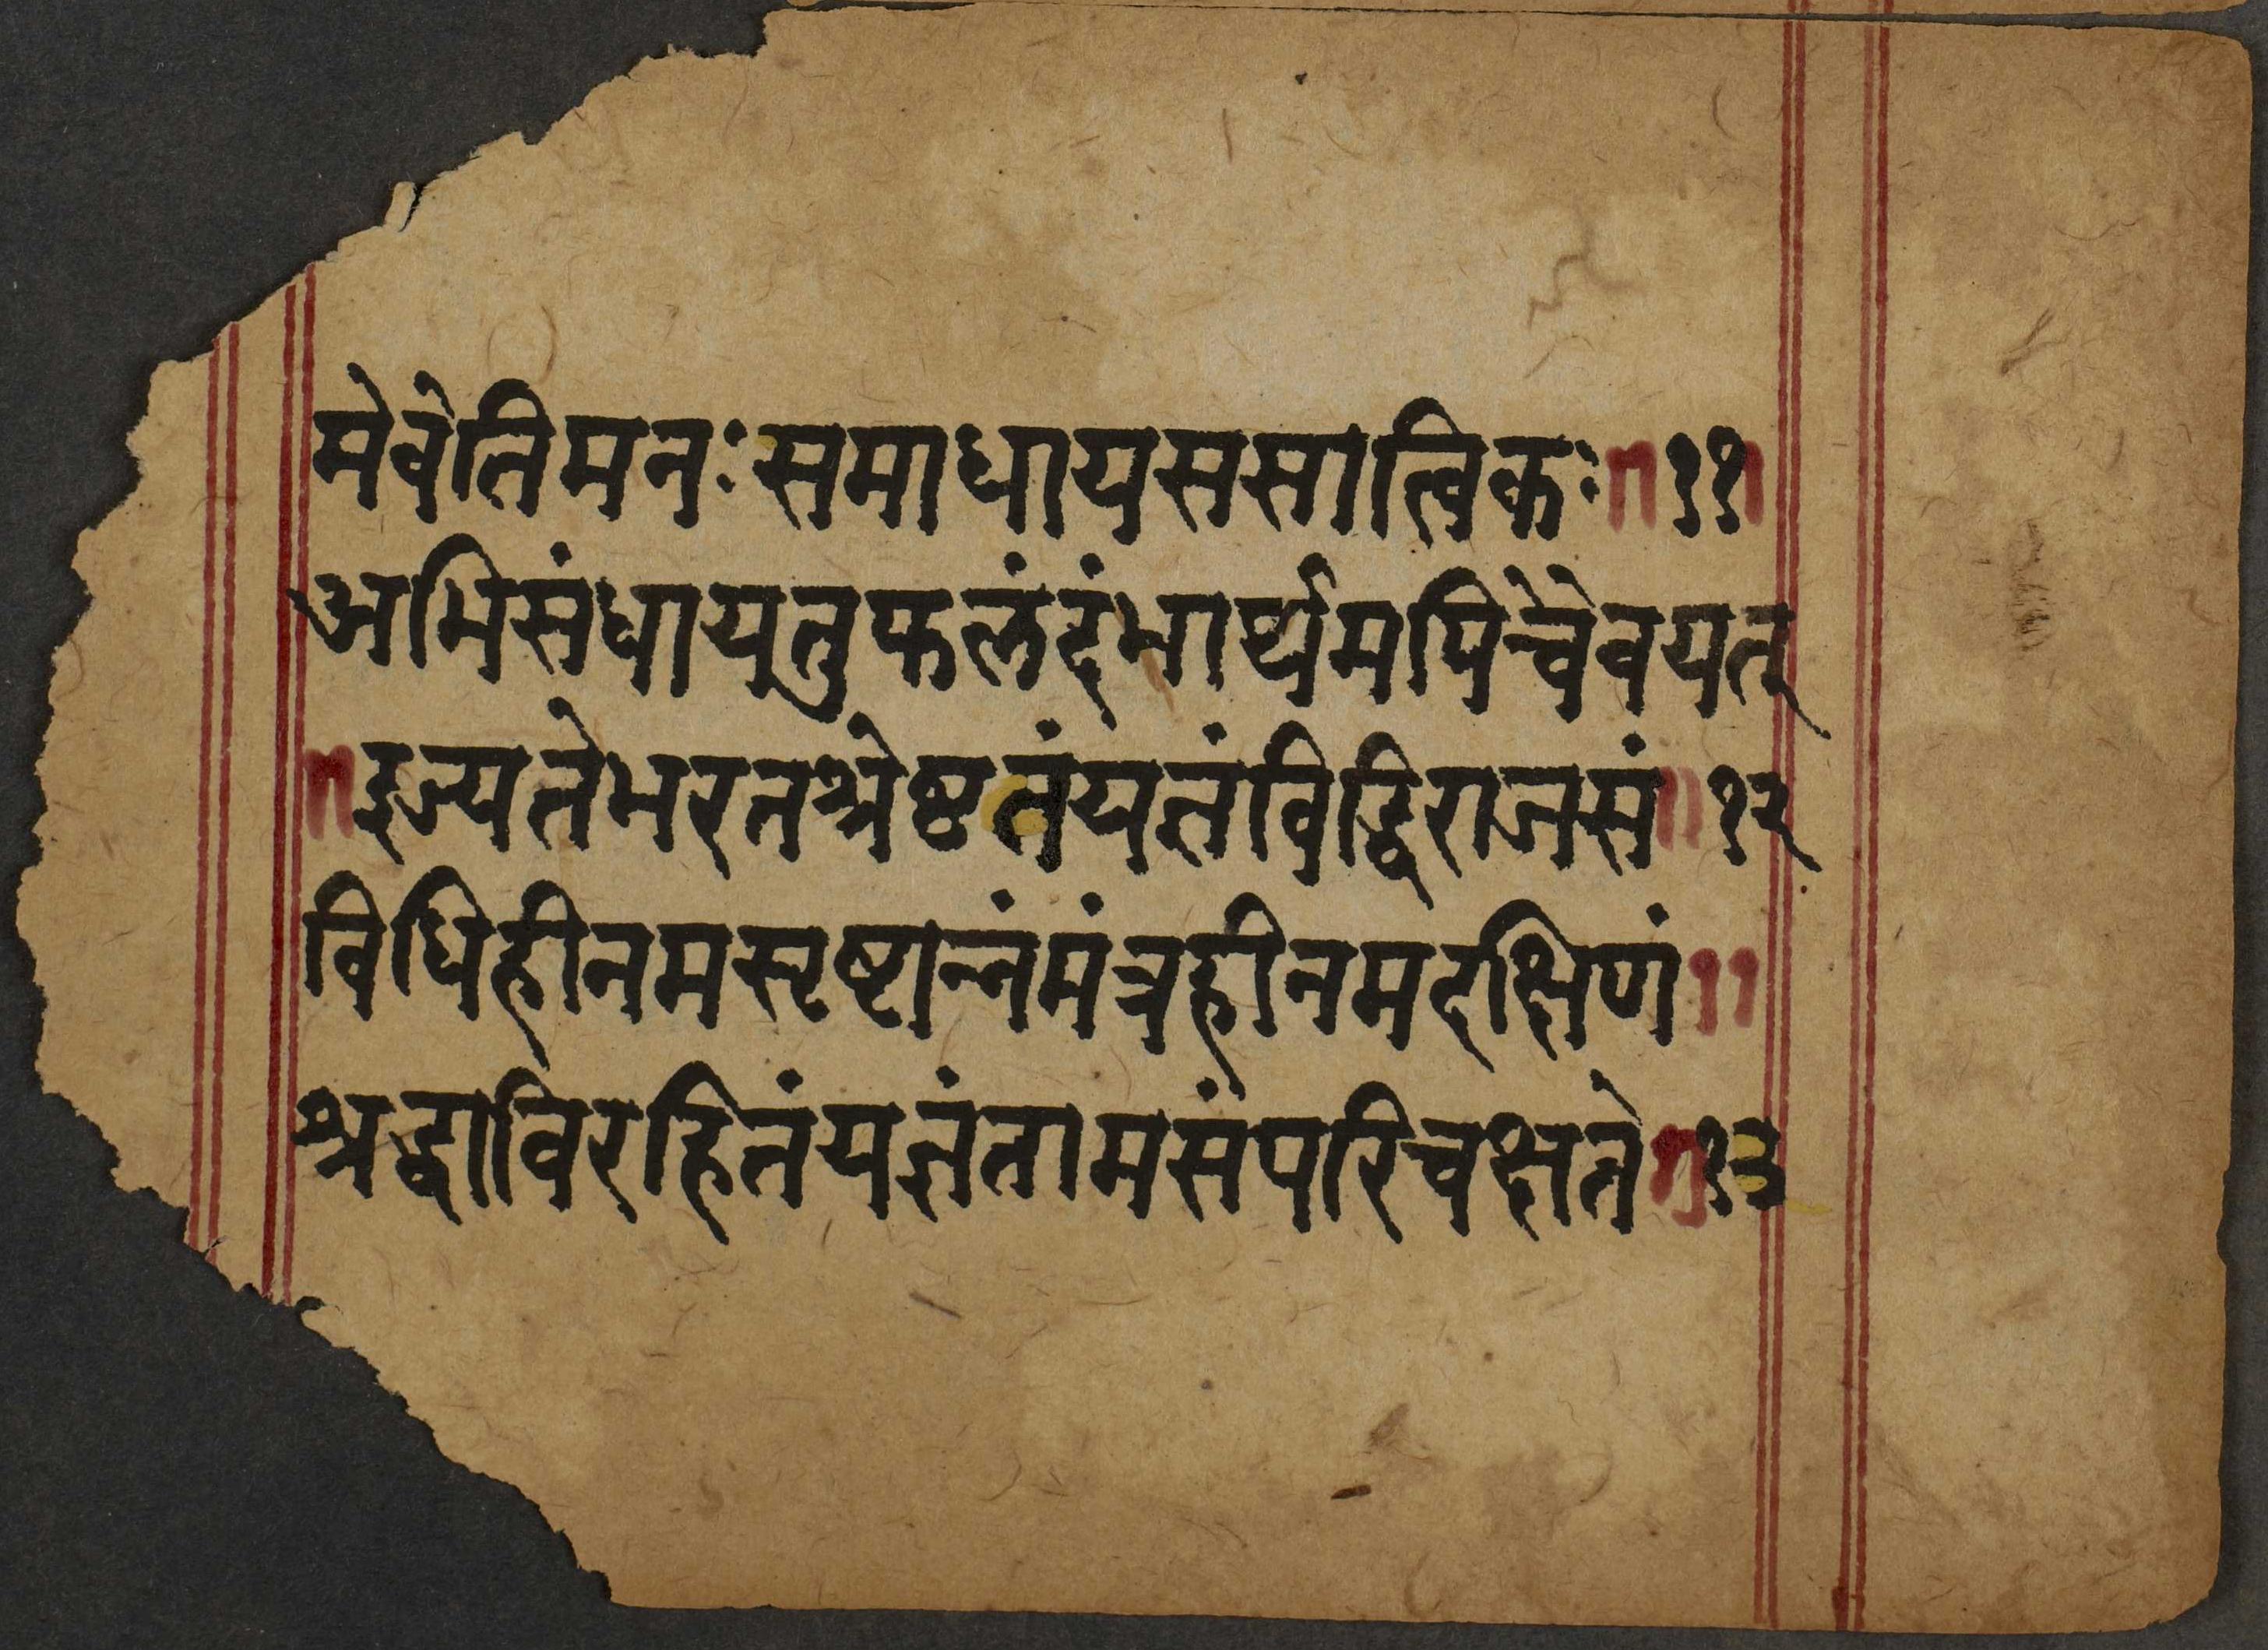 मेवेतिमनःसमाधायससात्विकः॥११॥
अभिसंधायतुफलंदंभार्थमपिचैवयत्
॥इज्यतेभरतश्रेष्ठतंयज्ञंविद्धिराजसं॥१२
विधिहीनमसृष्टान्नंमंत्रहीनमदक्षिणं॥
श्रद्धाविरहितंयज्ञंतामसंपरिचक्षते॥१३